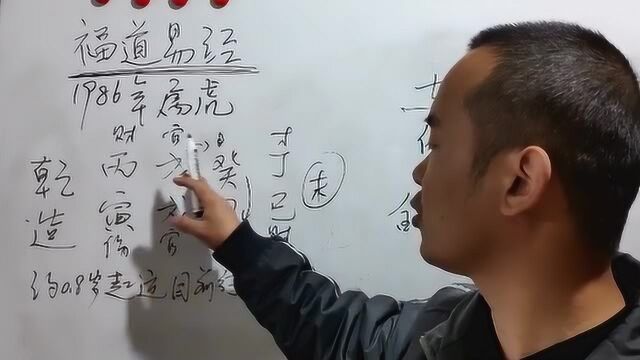 福道易经
1986年属虎
财 官 日 才
乾 丙 癸 丁 未
造 寅 巳
伤 官 财
约0.8岁起运目前